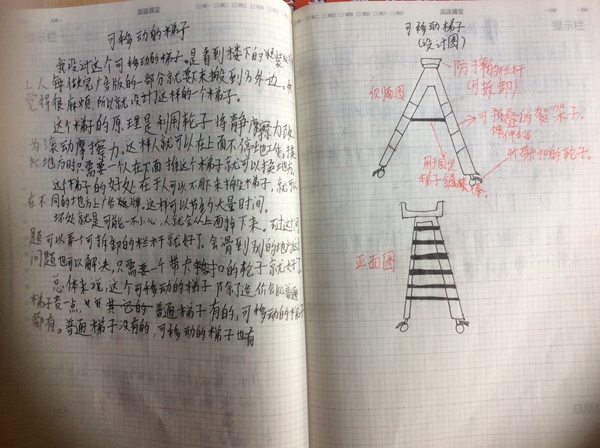 可移动的梯子
我设计这个可移动的梯子,是看到楼下的
工人每做完广告版的一部分就要下来搬到另外边,
觉得很麻烦,所以就设计了这样的一个梯子。
这个梯子的原理是利用轮子将静摩擦力改
为滚动摩擦力,这样人就可以在上面不停地工作,换
地方时只需要一个人在下面推这个梯子就可以换地方
这个梯子的好处在于人可以不用下来搬这梯子,就可以
在不同的地方上广告版牌。这样可以节省大量时间。
坏处就是可能一不小心,人就会从上面掉下来。不过这个问
题可以靠一个可拆卸的栏杆就好了。会滑到别的地方这个
问题也可以解决,只需要一个带卡扣的轮子就好了
总体来说,这个可移动的梯子除了造价会比普通
梯子贵一点,其它的普通梯子有的,可移动的梯子
都有。普通梯子没有的,可移动的梯子也有
可移动梯子
(设计图)
侧面图
防摔的栏杆
(可拆卸)
可折叠的架子
伸缩
用固定
梯子
带卡扣的轮子。
正面图